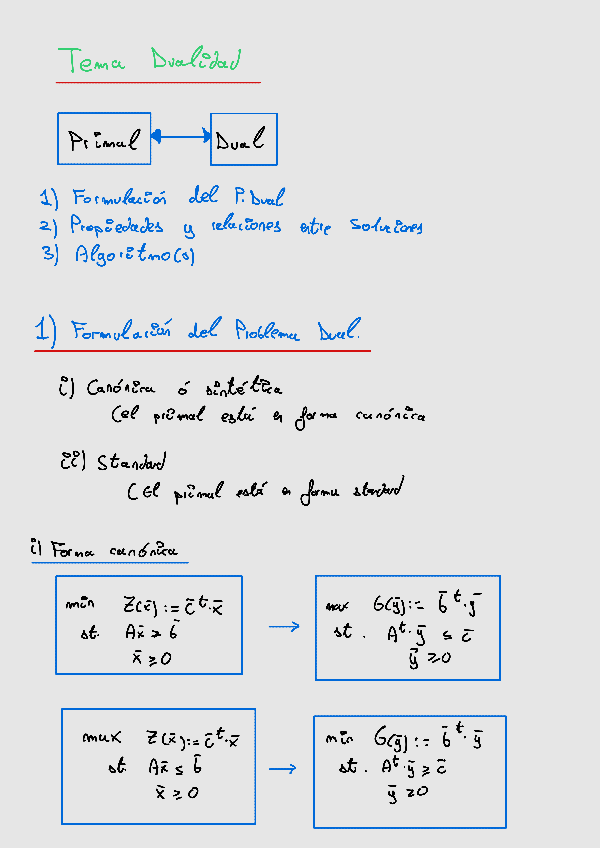 Tema Dualidad
Primal Dual
1) Formulación del P. Dual
2) Propiedades y relaciones entre soluciones
3) Algoritmo(s)
1) Formulación del Problema Dual.
i) Canónica ó sintética
(el primal está en forma canónica
ii) Standard
(El primal está en forma standard
i) Forma canónica
min Z(x̄) := c̄ᵗ·x̄
st. Ax̄ ≥ b̄
x̄ ≥ 0
max G(ȳ) := b̄ᵗ·ȳ
st. Aᵗ·ȳ ≤ c̄
ȳ ≥ 0
max Z(x̄) := c̄ᵗ·x̄
st. Ax̄ ≤ b̄
x̄ ≥ 0
min G(ȳ) := b̄ᵗ·ȳ
st. Aᵗ·ȳ ≥ c̄
ȳ ≥ 0